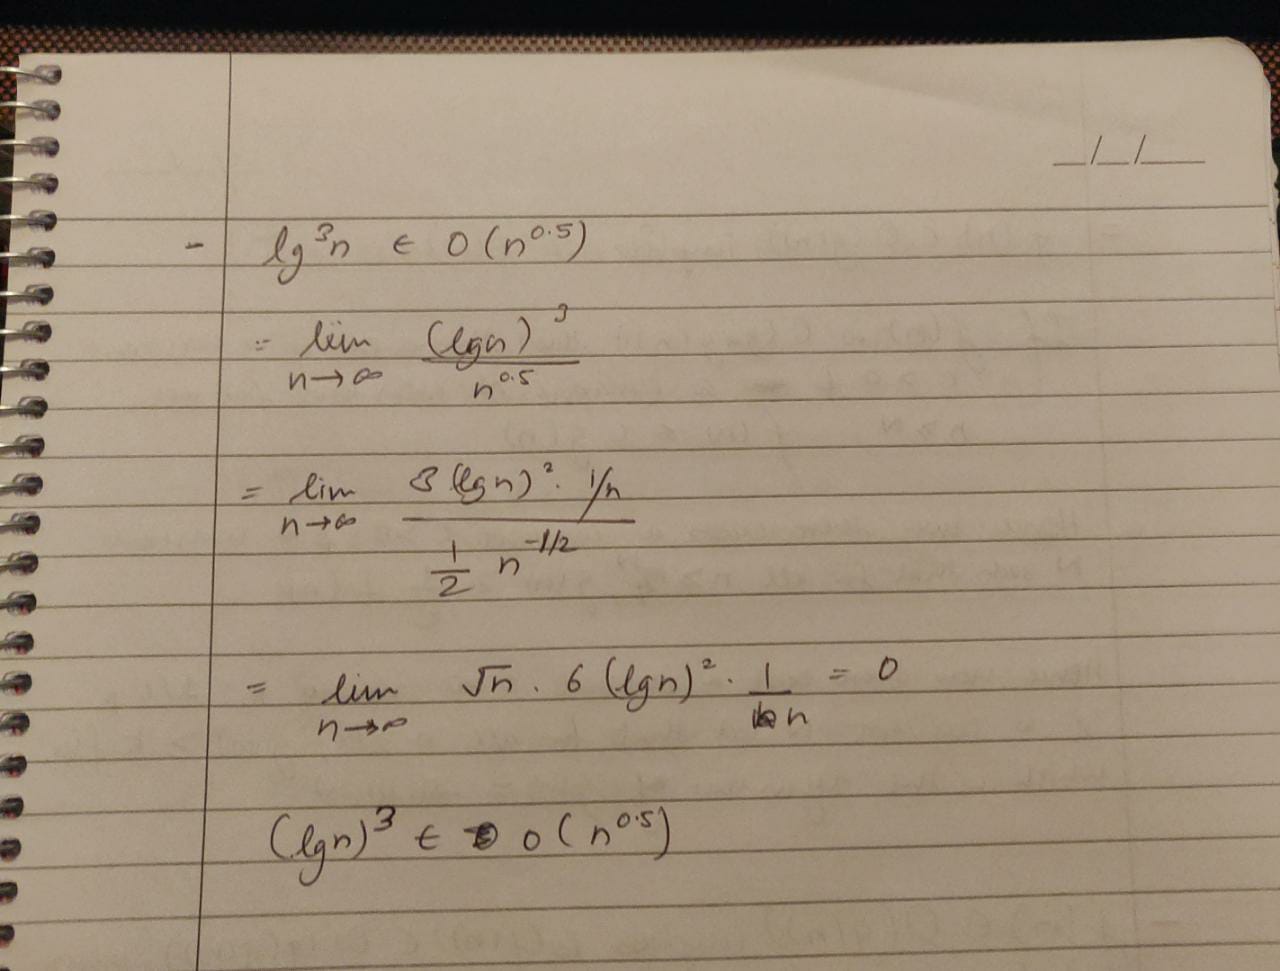 _/_/__
- lg³n ∈ O(n^0.5)
= lim n→∞ (lgn)³ / n^0.5
= lim n→∞ 3(lgn)² · 1/n / 1/2 n^-1/2
= lim n→∞ √n · 6(lgn)² · 1/n = 0
(lgn)³ ∈ o(n^0.5)